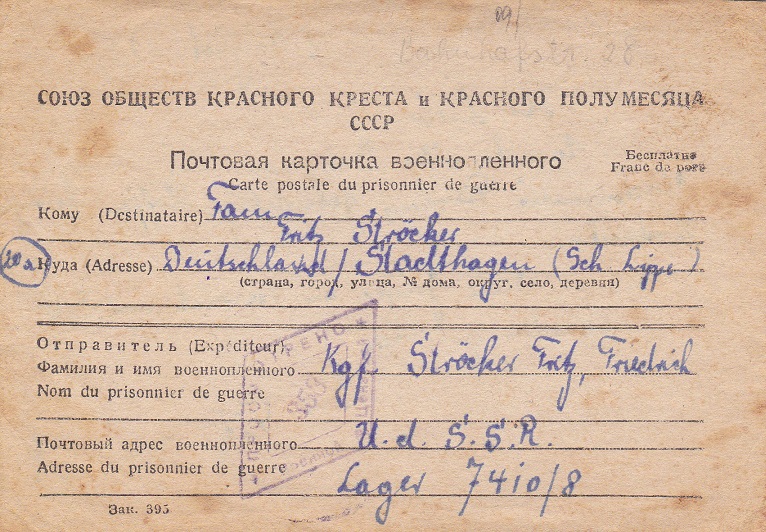 Bahnhofstr. 28.
СОЮЗ ОБЩЕСТВ КРАСНОГО КРЕСТА и КРАСНОГО ПОЛУМЕСЯЦА
СССР
Почтовая карточка военнопленного
Бесплатно
Carte postale du prisonnier de guerre
Franc de port
Кому (Destinataire) Fam
Fritz Ströcker
20a Куда (Adresse) Deutschland / Stadthagen (Sch. Lippe)
(страна, город, улица, № дома, округ, село, деревня)
Отправитель (Expéditeur)
Фамилия и имя военнопленного Kgf. Ströcker Fritz, Friedrich
Nom du prisonnier de guerre
Почтовый адрес военнопленного U. d. S. S. R.
Adresse du prisonnier de guerre Lager 7410/8
Зак. 395